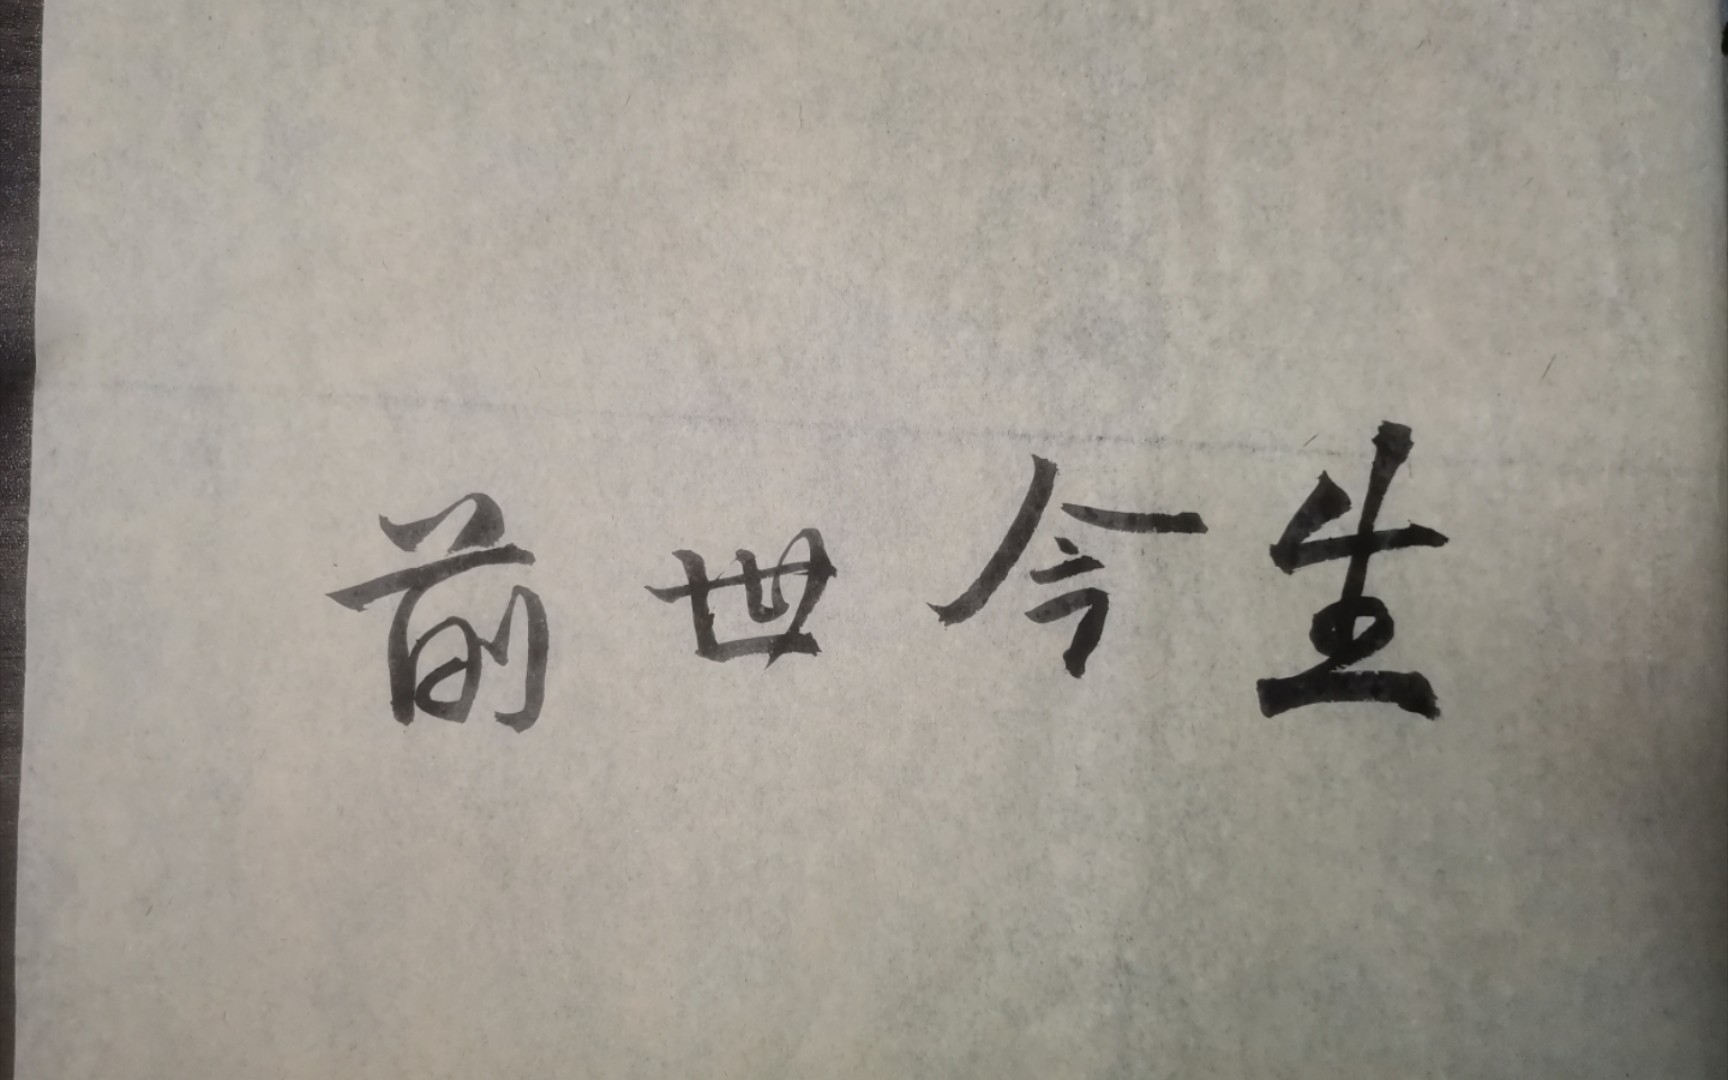 前世今生